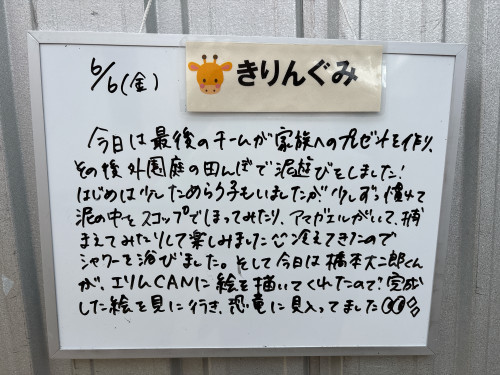 6/6(金)
きりんぐみ
今日は最後のチームが家族へのプレゼントを作り、
その後外園庭の田んぼで泥遊びをしました！
はじめは少しためらう子もいましたが少しずつ慣れて
泥の中をスコップでほってみたり、アマガエルがいて、捕
まえてみたりして楽しみました 冷えてきたので
シャワーを浴びました。そして今日は橋本大二郎くん
が、エリムCANに絵を描いてくれたので、完成
した絵を見に行き、恐竜に見入ってました